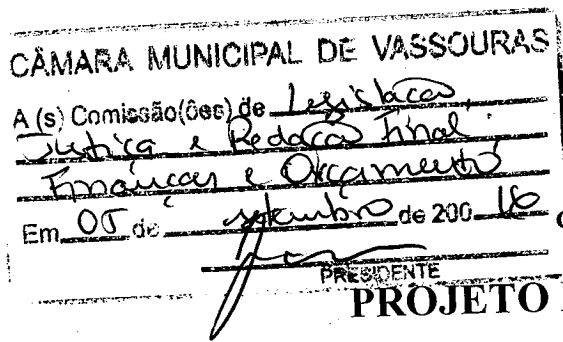 CÂMARA MUNICIPAL DE VASSOURAS
A (s) Comissão(ões) de Legislação,
Justiça e Redação Final.
Finanças e Orçamento
Em 05 de setembro de 200 16
PRESIDENTE
PROJETO